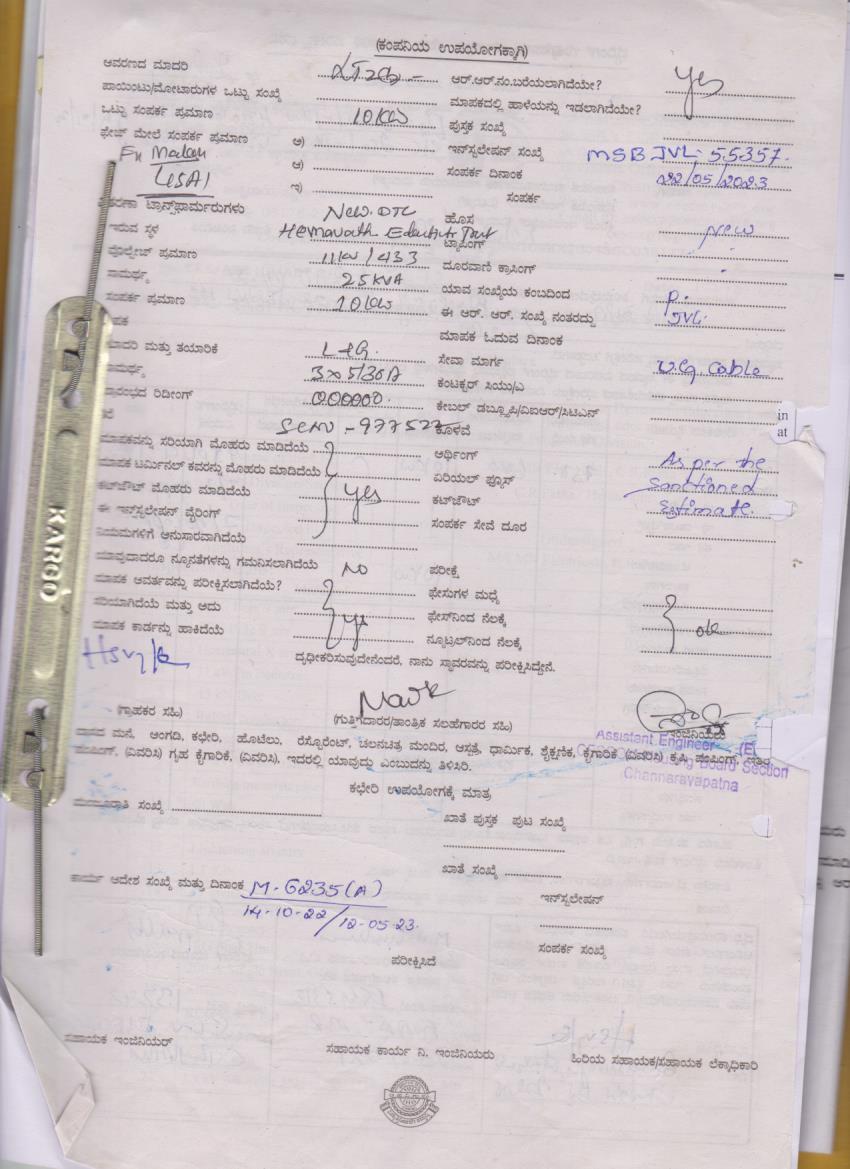 (ಕಂಪನಿಯ ಉಪಯೋಗಕ್ಕಾಗಿ)
ಆವರಣದ ಮಾದರಿ ಆರ್.ಆರ್.ನಂ.ಬರೆಯಲಾಗಿದೆಯೇ? Yes
ಪಾಯಿಂಟು/ಮೋಟಾರುಗಳ ಒಟ್ಟು ಸಂಖ್ಯೆ ಮಾಪಕದಲ್ಲಿ ಹಾಳೆಯನ್ನು ಇಡಲಾಗಿದೆಯೇ?
ಒಟ್ಟು ಸಂಪರ್ಕ ಪ್ರಮಾಣ 10KW ಪುಸ್ತಕ ಸಂಖ್ಯೆ
ಫೇಜ್ ಮೇಲೆ ಸಂಪರ್ಕ ಪ್ರಮಾಣ ಅ) ಇನ್‌ಸ್ಟಲೇಷನ್ ಸಂಖ್ಯೆ MSB JVL-55357.
ಆ) ಸಂಪರ್ಕ ದಿನಾಂಕ 22/05/2023
ಇ) ಸಂಪರ್ಕ
ಟ್ರಾನ್ಸ್‌ಫಾರ್ಮರುಗಳು New. DTC ಹೊಸ New
ಇರುವ ಸ್ಥಳ ಟ್ಯಾಪಿಂಗ್
ವೋಲ್ಟೇಜ್ ಪ್ರಮಾಣ 11KV/433 ದೂರವಾಣಿ ಕ್ರಾಸಿಂಗ್
ಸಾಮರ್ಥ್ಯ 25KVA ಯಾವ ಸಂಖ್ಯೆಯ ಕಂಬದಿಂದ P.
ಸಂಪರ್ಕ ಪ್ರಮಾಣ 10KW ಈ ಆರ್. ಆರ್. ಸಂಖ್ಯೆ ನಂತರದ್ದು JVL.
ಮಾಪಕ ಓದುವ ದಿನಾಂಕ
ಮಾದರಿ ಮತ್ತು ತಯಾರಿಕೆ L&G. ಸೇವಾ ಮಾರ್ಗ U.G. Cable
ಸಾಮರ್ಥ್ಯ 3x5/30A ಕಂಟಕ್ಟರ್ ಸಿಯು/ಎ
ಪ್ರಾರಂಭದ ರೀಡಿಂಗ್ 000000. ಕೇಬಲ್ ಡಬ್ಲ್ಯೂಪಿ/ಎಐಆರ್/ಸಿಟಿಎನ್ in
ಕೊಳವೆ at
ಮಾಪಕವನ್ನು ಸರಿಯಾಗಿ ಮೊಹರು ಮಾಡಿದೆಯೆ ಅರ್ಥಿಂಗ್ As per the
ಮಾಪಕ ಟರ್ಮಿನಲ್ ಕವರನ್ನು ಮೊಹರು ಮಾಡಿದೆಯೆ ಏರಿಯಲ್ ಫ್ಯೂಸ್ Sanctioned
ಕಟ್‌ಔಟ್ ಮೊಹರು ಮಾಡಿದೆಯೆ Yes ಕಟ್‌ಔಟ್ Estimate.
ಈ ಇನ್‌ಸ್ಟಲೇಷನ್ ವೈರಿಂಗ್ ಸಂಪರ್ಕ ಸೇವೆ ದೂರ
ನಿಯಮಗಳಿಗೆ ಅನುಸಾರವಾಗಿದೆಯೆ
ಯಾವುದಾದರೂ ನ್ಯೂನತೆಗಳನ್ನು ಗಮನಿಸಲಾಗಿದೆಯೆ NO ಪರೀಕ್ಷೆ
ಮಾಪಕ ಆವರ್ತವನ್ನು ಪರೀಕ್ಷಿಸಲಾಗಿದೆಯೆ? ಫೇಸುಗಳ ಮಧ್ಯೆ
ಸರಿಯಾಗಿದೆಯೆ ಮತ್ತು ಅದು Yes ಫೇಸ್‌ನಿಂದ ನೆಲಕ್ಕೆ ok
ಮಾಪಕ ಕಾರ್ಡನ್ನು ಹಾಕಿದೆಯೆ ನ್ಯೂಟ್ರಲ್‌ನಿಂದ ನೆಲಕ್ಕೆ
ದೃಢೀಕರಿಸುವುದೇನೆಂದರೆ, ನಾನು ಸ್ಥಾವರವನ್ನು ಪರೀಕ್ಷಿಸಿದ್ದೇನೆ.
(ಗ್ರಾಹಕರ ಸಹಿ) (ಗುತ್ತಿಗೆದಾರರ/ತಾಂತ್ರಿಕ ಸಲಹೆಗಾರರ ಸಹಿ) ಇಂಜಿನಿಯರು
Assistant Engineer (E
ವಾಸದ ಮನೆ, ಅಂಗಡಿ, ಕಛೇರಿ, ಹೊಟೆಲು, ರೆಸ್ಟೊರೆಂಟ್, ಚಲನಚಿತ್ರ ಮಂದಿರ, ಆಸ್ಪತ್ರೆ, ಧಾರ್ಮಿಕ, ಶೈಕ್ಷಣಿಕ, ಕೈಗಾರಿಕೆ (ವಿವರಿಸಿ) ಕೃಷಿ ಪಂಪಿಂಗ್, ಇತರೆ
ಪಂಪಿಂಗ್, (ವಿವರಿಸಿ) ಗೃಹ ಕೈಗಾರಿಕೆ, (ವಿವರಿಸಿ), ಇದರಲ್ಲಿ ಯಾವುದು ಎಂಬುದನ್ನು ತಿಳಿಸಿರಿ. Board Section
Channarayapatna
ಕಛೇರಿ ಉಪಯೋಗಕ್ಕೆ ಮಾತ್ರ
ಮಂಜೂರಾತಿ ಸಂಖ್ಯೆ ಖಾತೆ ಪುಸ್ತಕ ಪುಟ ಸಂಖ್ಯೆ
ಖಾತೆ ಸಂಖ್ಯೆ
ಕಾರ್ಯ ಆದೇಶ ಸಂಖ್ಯೆ ಮತ್ತು ದಿನಾಂಕ M-6235(A) ಇನ್‌ಸ್ಟಲೇಷನ್
14-10-22/12-05-23.
ಸಂಪರ್ಕ ಸಂಖ್ಯೆ
ಪರೀಕ್ಷಿಸಿದೆ
ಸಹಾಯಕ ಇಂಜಿನಿಯರ್ ಸಹಾಯಕ ಕಾರ್ಯ ನಿ. ಇಂಜಿನಿಯರು ಹಿರಿಯ ಸಹಾಯಕ/ಸಹಾಯಕ ಲೆಕ್ಕಾಧಿಕಾರಿ
KARGO